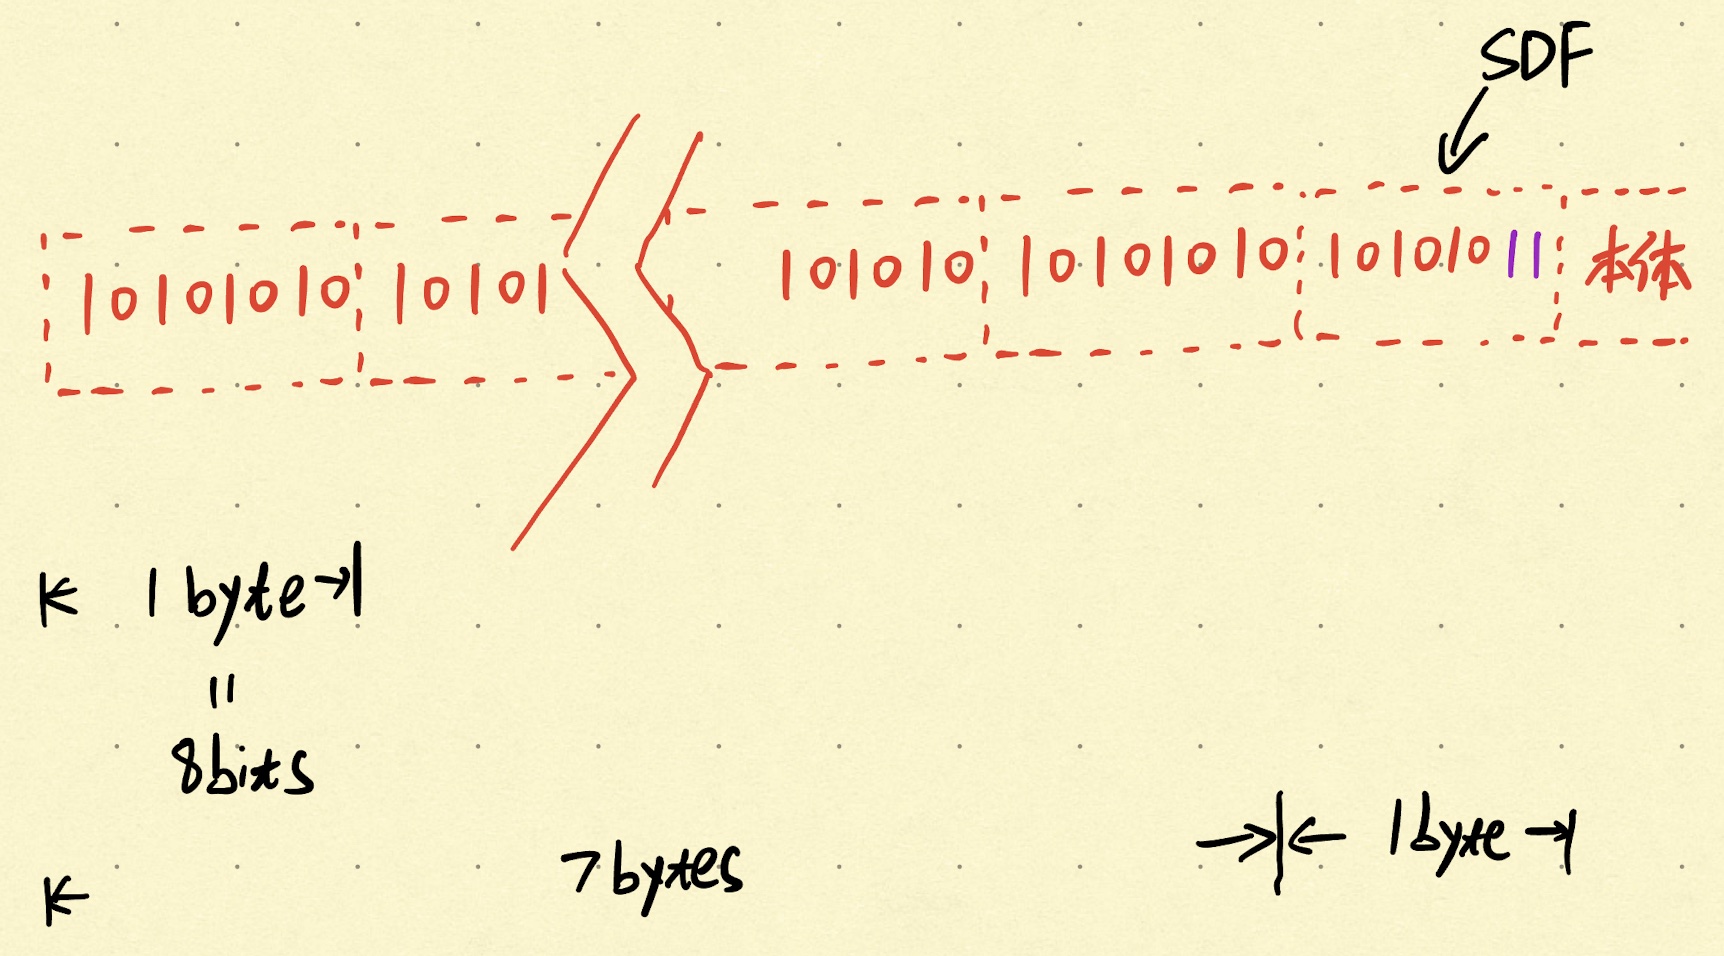 SDF
10101010 10101 101010 10101010 10101011 本体
1 byte
=
8bits
7bytes
1byte